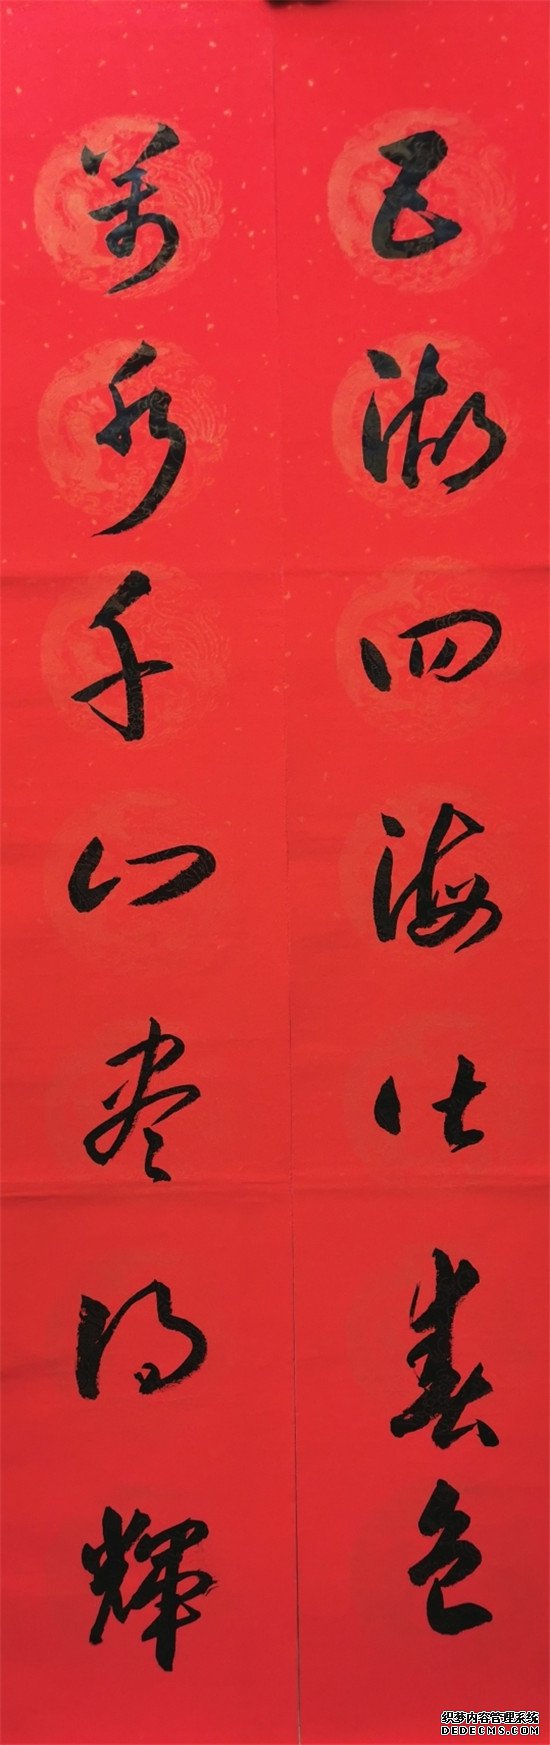 五湖四海皆春色
萬水千山尽得輝
织梦内容管理系统
DEDECMS.COM